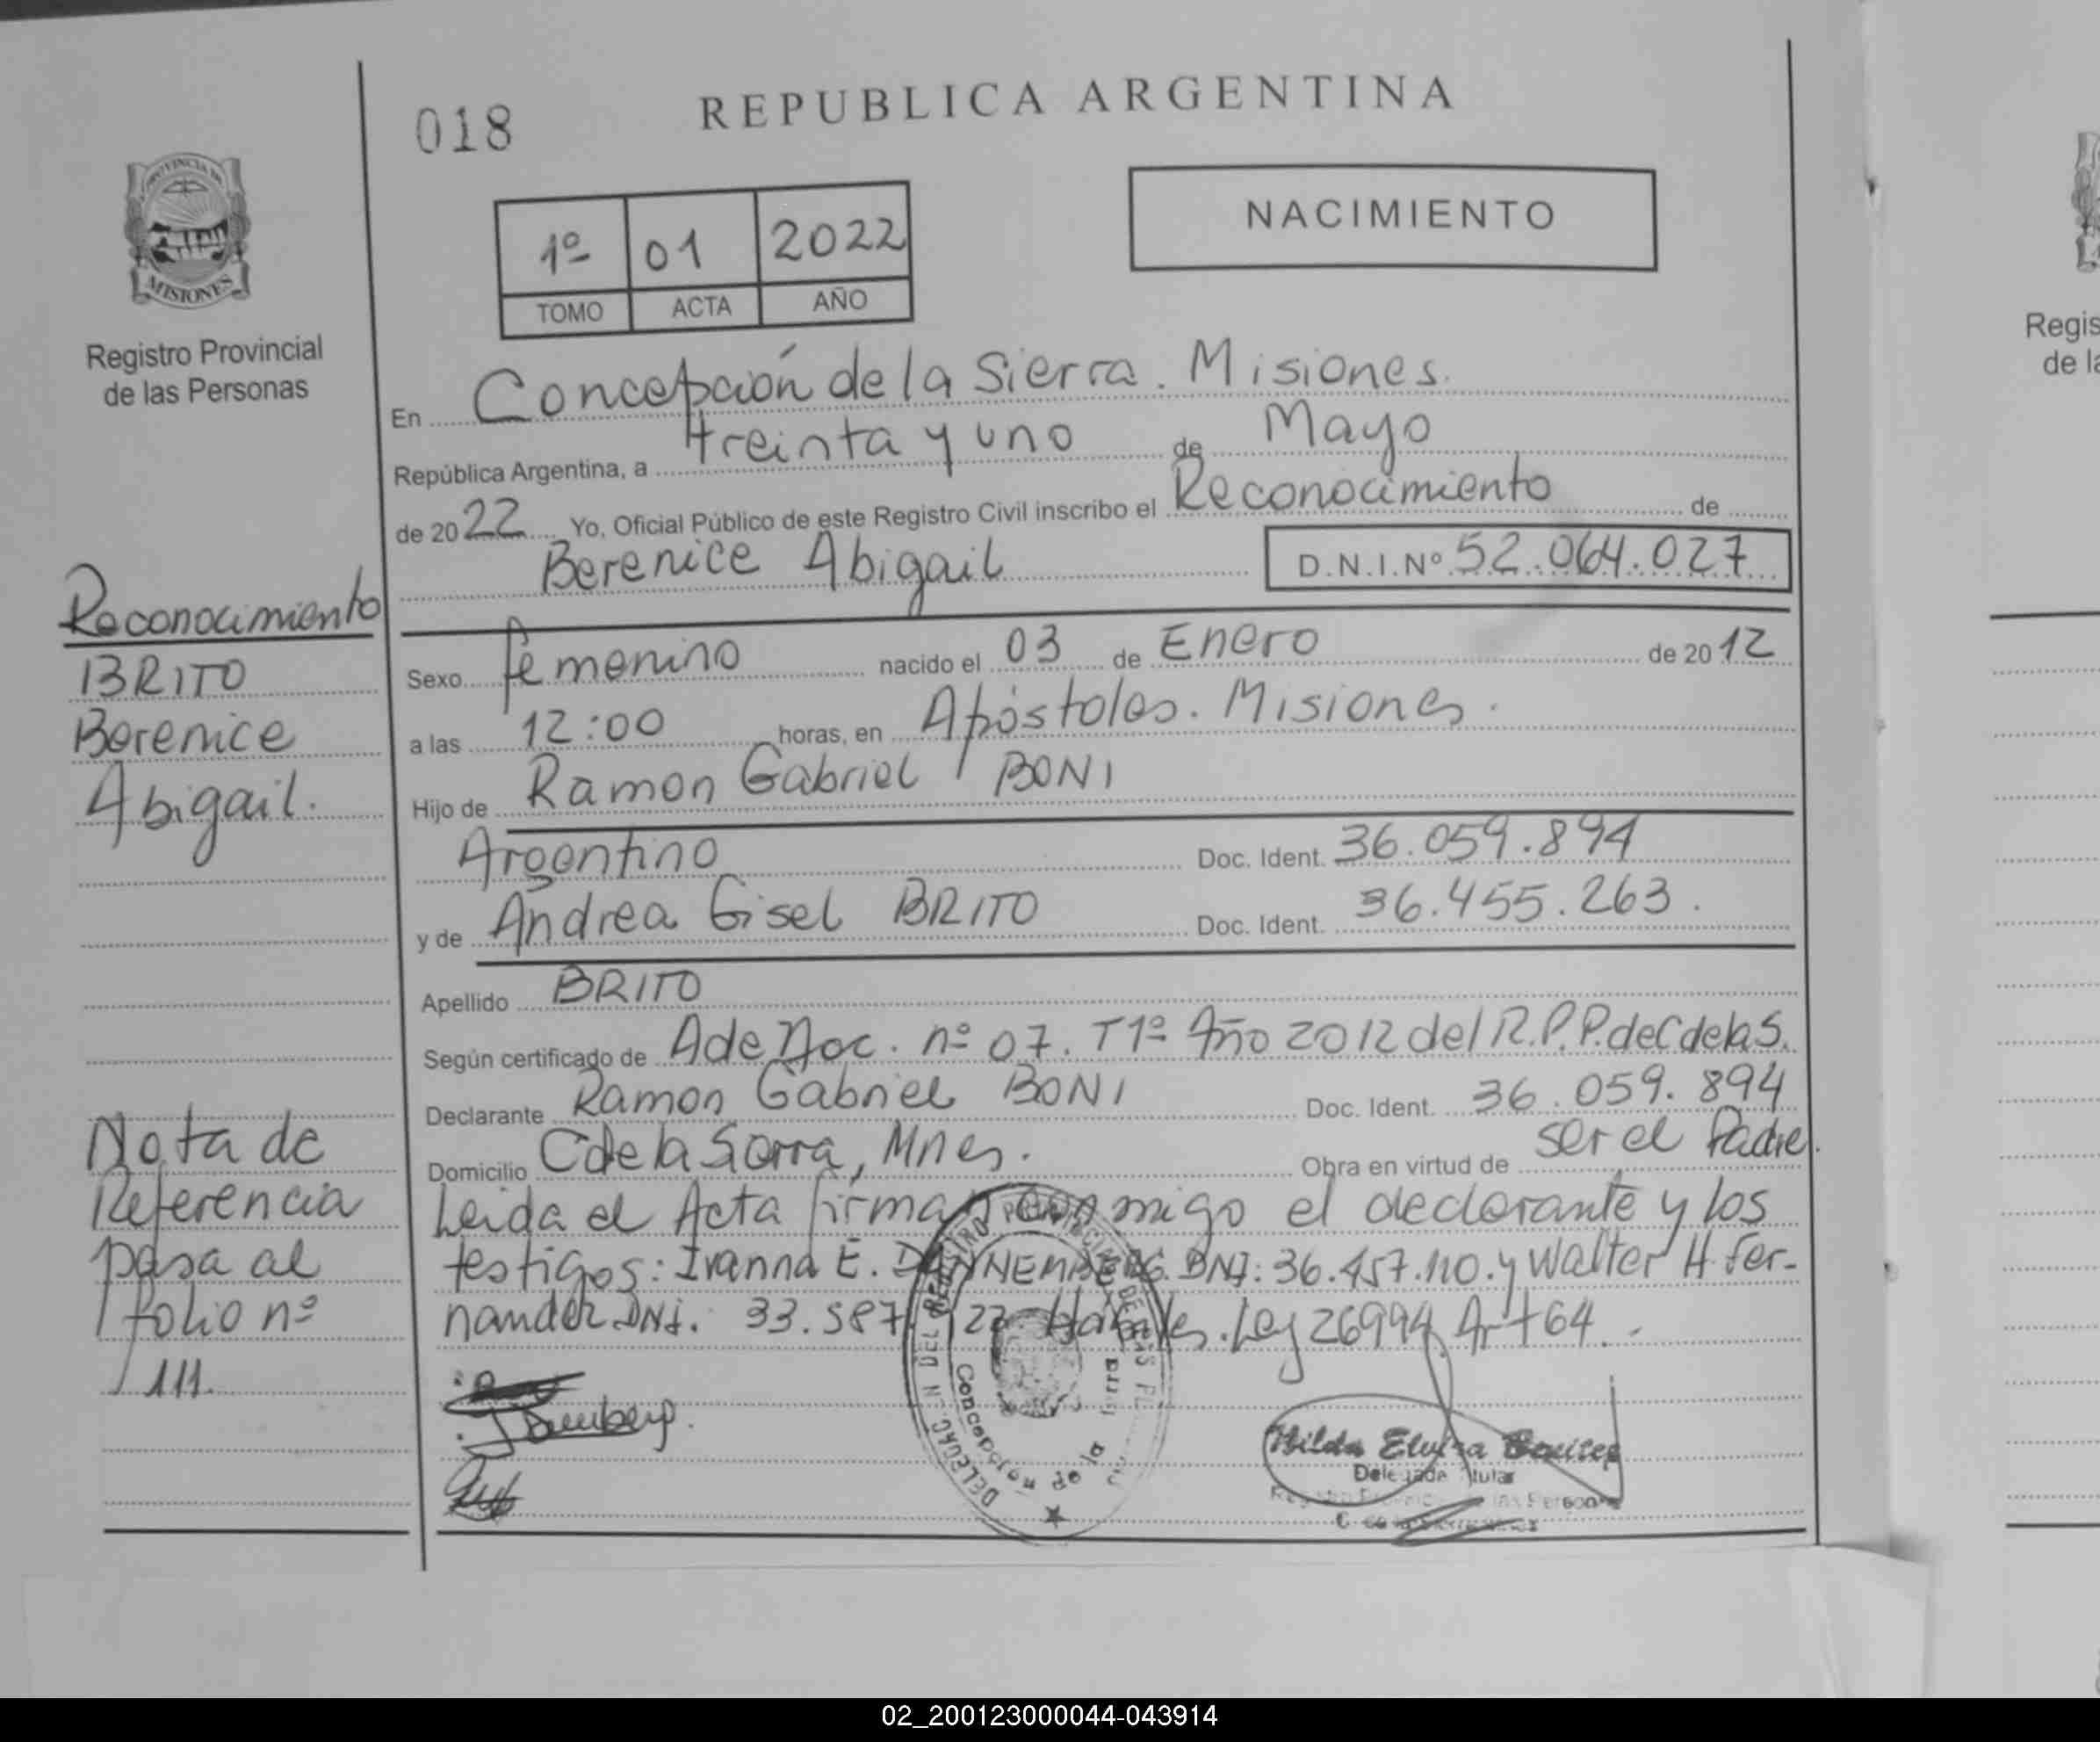 018
REPUBLICA ARGENTINA
NACIMIENTO
1º 01 2022
TOMO ACTA AÑO
PROVINCIA DE
MISIONES
Registro Provincial
de las Personas
En Concepción de la Sierra. Misiones.
República Argentina, a treinta y uno de Mayo
de 2022 Yo, Oficial Público de este Registro Civil inscribo el Reconocimiento de
Berenice Abigail D.N.I.Nº 52.064.027
Sexo femenino nacido el 03 de Enero de 2012
a las 12:00 horas, en Apóstoles. Misiones.
Hijo de Ramon Gabriel BONI
Argentino Doc. Ident. 36.059.894
y de Andrea Gisel BRITO Doc. Ident. 36.455.263.
Apellido BRITO
Según certificado de A de Noc. nº 07. T1º Año 2012 del R.P.P. de C de la S.
Declarante Ramon Gabriel BONI Doc. Ident. 36.059.894
Domicilio C de la Sierra, Mnes. Obra en virtud de ser el Padre.
Leida el Acta firman conmigo el declarante y los
testigos: Ivanna E. DNI: 36.457.110. y Walter H. Fer-
nandez DNI. 33.587. Habiles. Ley 26994 Art 64.-
Reconocimiento
BRITO
Berenice
Abigail.
Nota de
Referencia
pasa al
folio nº
111.
Concepción de la
Hilda Elvira Benitez
Delegada Titular
Regis
de la
02_200123000044-043914